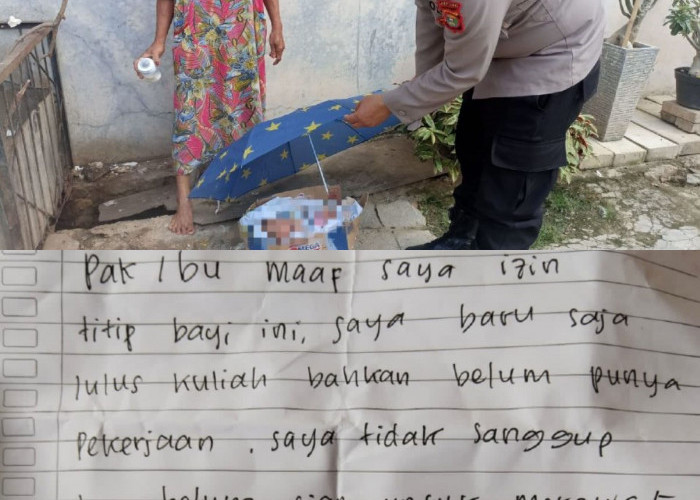 Pak / Bu maaf saya izin
titip bayi ini, saya baru saja
lulus kuliah bahkan belum punya
pekerjaan . saya tidak sanggup
belum siap untuk merawat